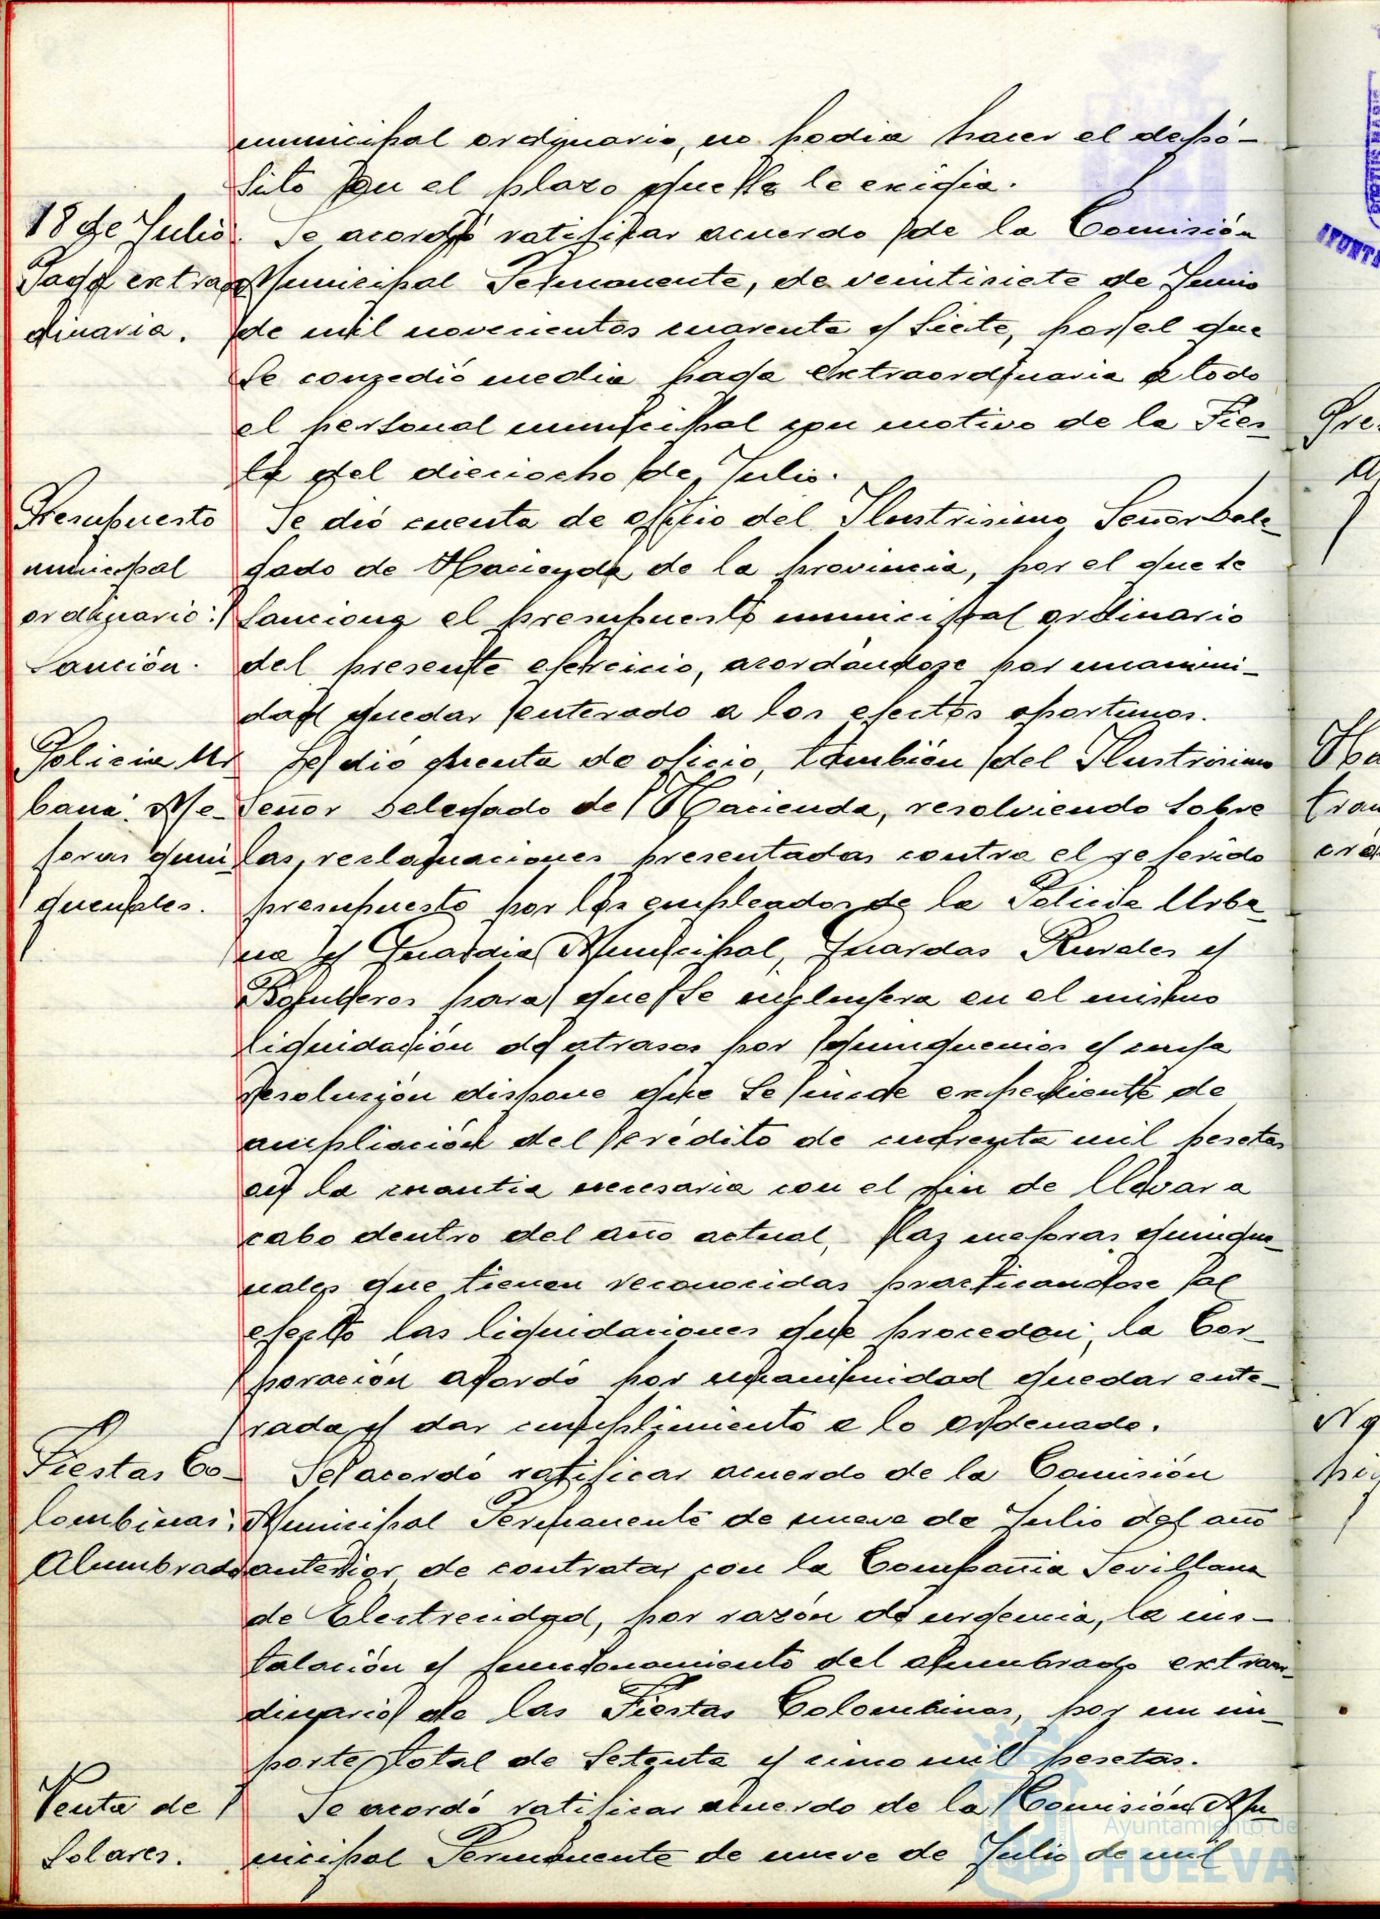 municipal ordinario, no podia hacer el depó-
sito en el plazo que se le exigia.
18 de Julio.
Paga extraor
dinaria.
Se acordó ratificar acuerdo de la Comisión
Municipal Permanente, de veintisiete de Junio
de mil novecientos cuarenta y siete, por el que
se concedió media paga extraordinaria a todo
el personal municipal con motivo de la Fies-
ta del dieciocho de Julio.
Presupuesto
municipal
ordinario:
Sanción.
Se dió cuenta de oficio del Ilustrisimo Señor Dele-
gado de Hacienda de la provincia, por el que se
sanciona el presupuesto municipal ordinario
del presente ejercicio, acordándose por unanimi-
dad quedar enterado a los efectos oportunos.
Policia Ur
bana. Me-
joras quin
quenales.
Se dió cuenta de oficio, también del Ilustrisimo
Señor Delegado de Hacienda, resolviendo sobre
las reclamaciones presentadas contra el referido
presupuesto por los empleados de la Policia Urba-
na y Guardia Municipal, Guardas Rurales y
Bomberos para que se incluyera en el mismo
liquidación de atrasos por quinquenios y cuya
resolución dispone que se incide expediente de
ampliación del crédito de cuarenta mil pesetas
en la cuantia necesaria con el fin de llevar a
cabo dentro del año actual, las mejoras quinque-
nales que tienen reconocidas practicandose al
efecto las liquidaciones que procedan; la Cor-
poración acordó por unanimidad quedar ente-
rada y dar cumplimiento a lo ordenado.
Fiestas Co-
lombinas:
Alumbrado
Se acordó ratificar acuerdo de la Comisión
Municipal Permanente de nueve de Julio del año
anterior de contratar con la Compañia Sevillana
de Electricidad, por razón de urgencia, la ins-
talación y funcionamiento del alumbrado extraor-
dinario de las Fiestas Colombinas, por un im-
porte total de setenta y cinco mil pesetas.
Venta de
Solares.
Se acordó ratificar acuerdo de la Comisión Mu-
nicipal Permanente de nueve de Julio de mil
Ayuntamiento de
HUELVA